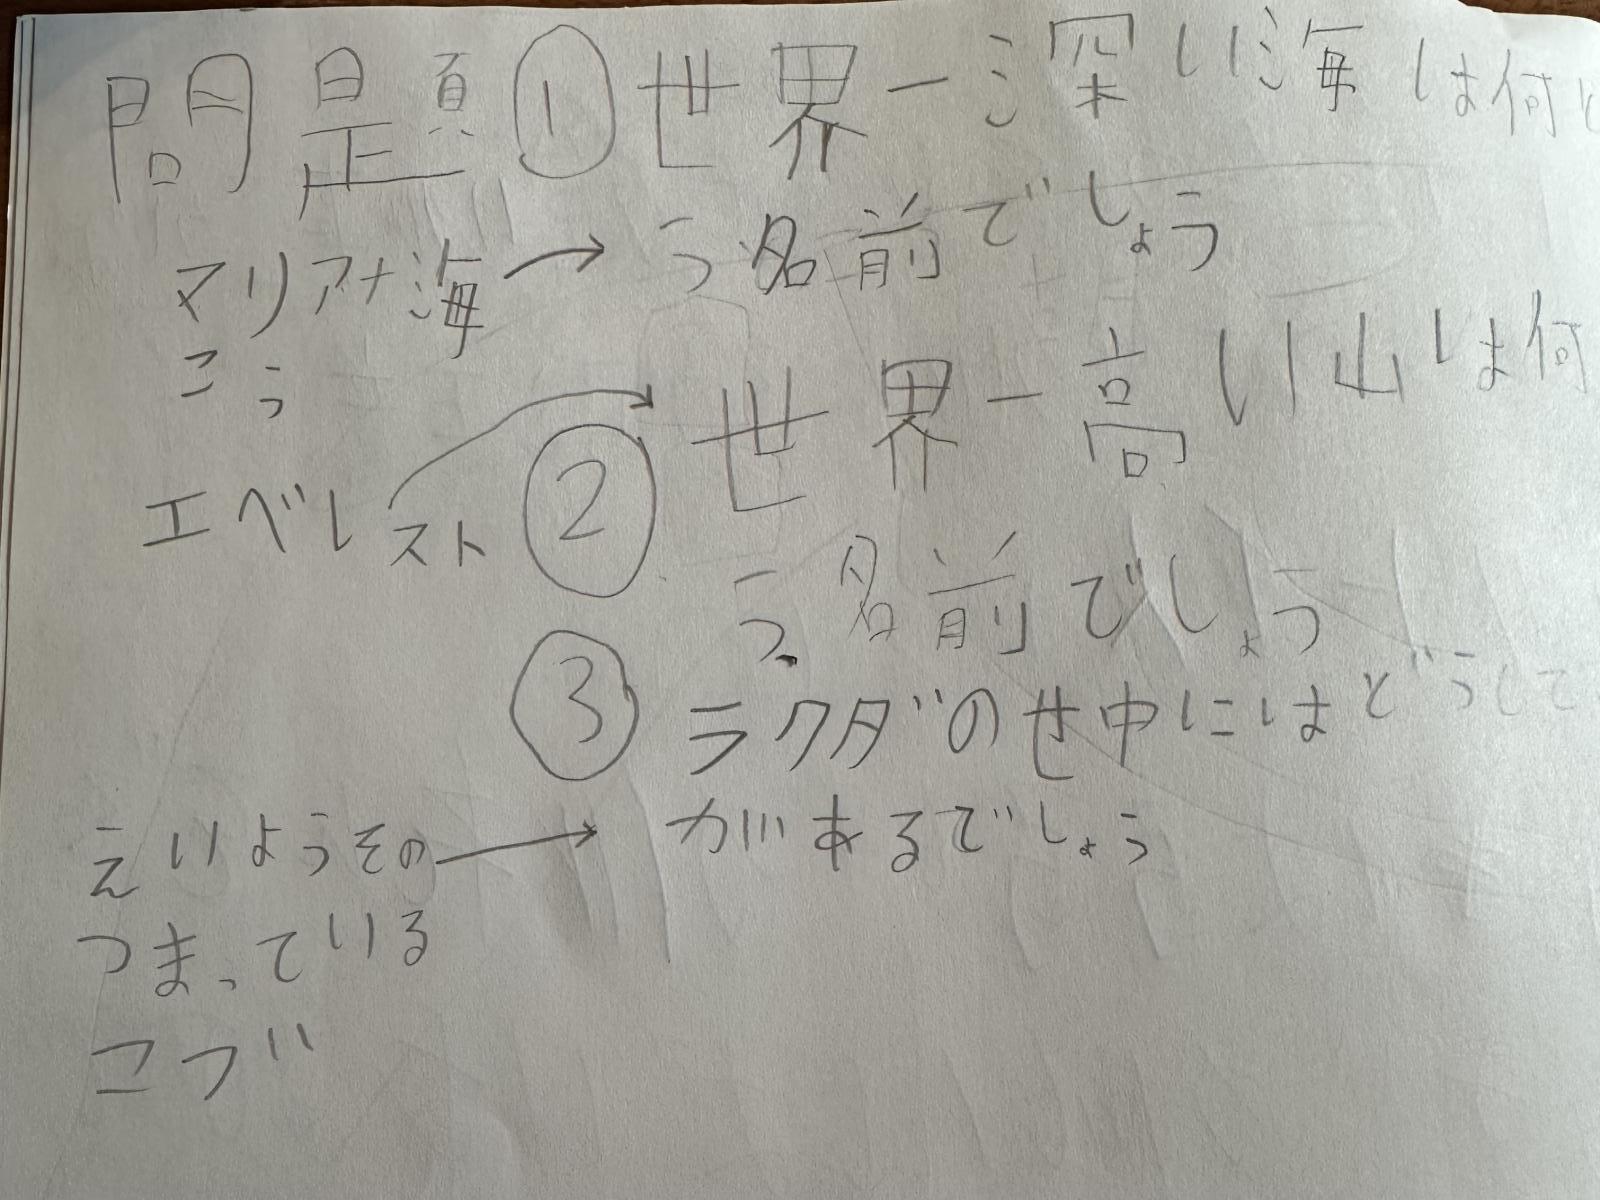 問題①世界一深い海は何と
いう名前でしょう
マリアナ海
こう
②世界一高い山は何
う名前でしょう
エベレスト
③ラクダのせ中にはどうして
があるでしょう
えいようその
つまっている
コブ